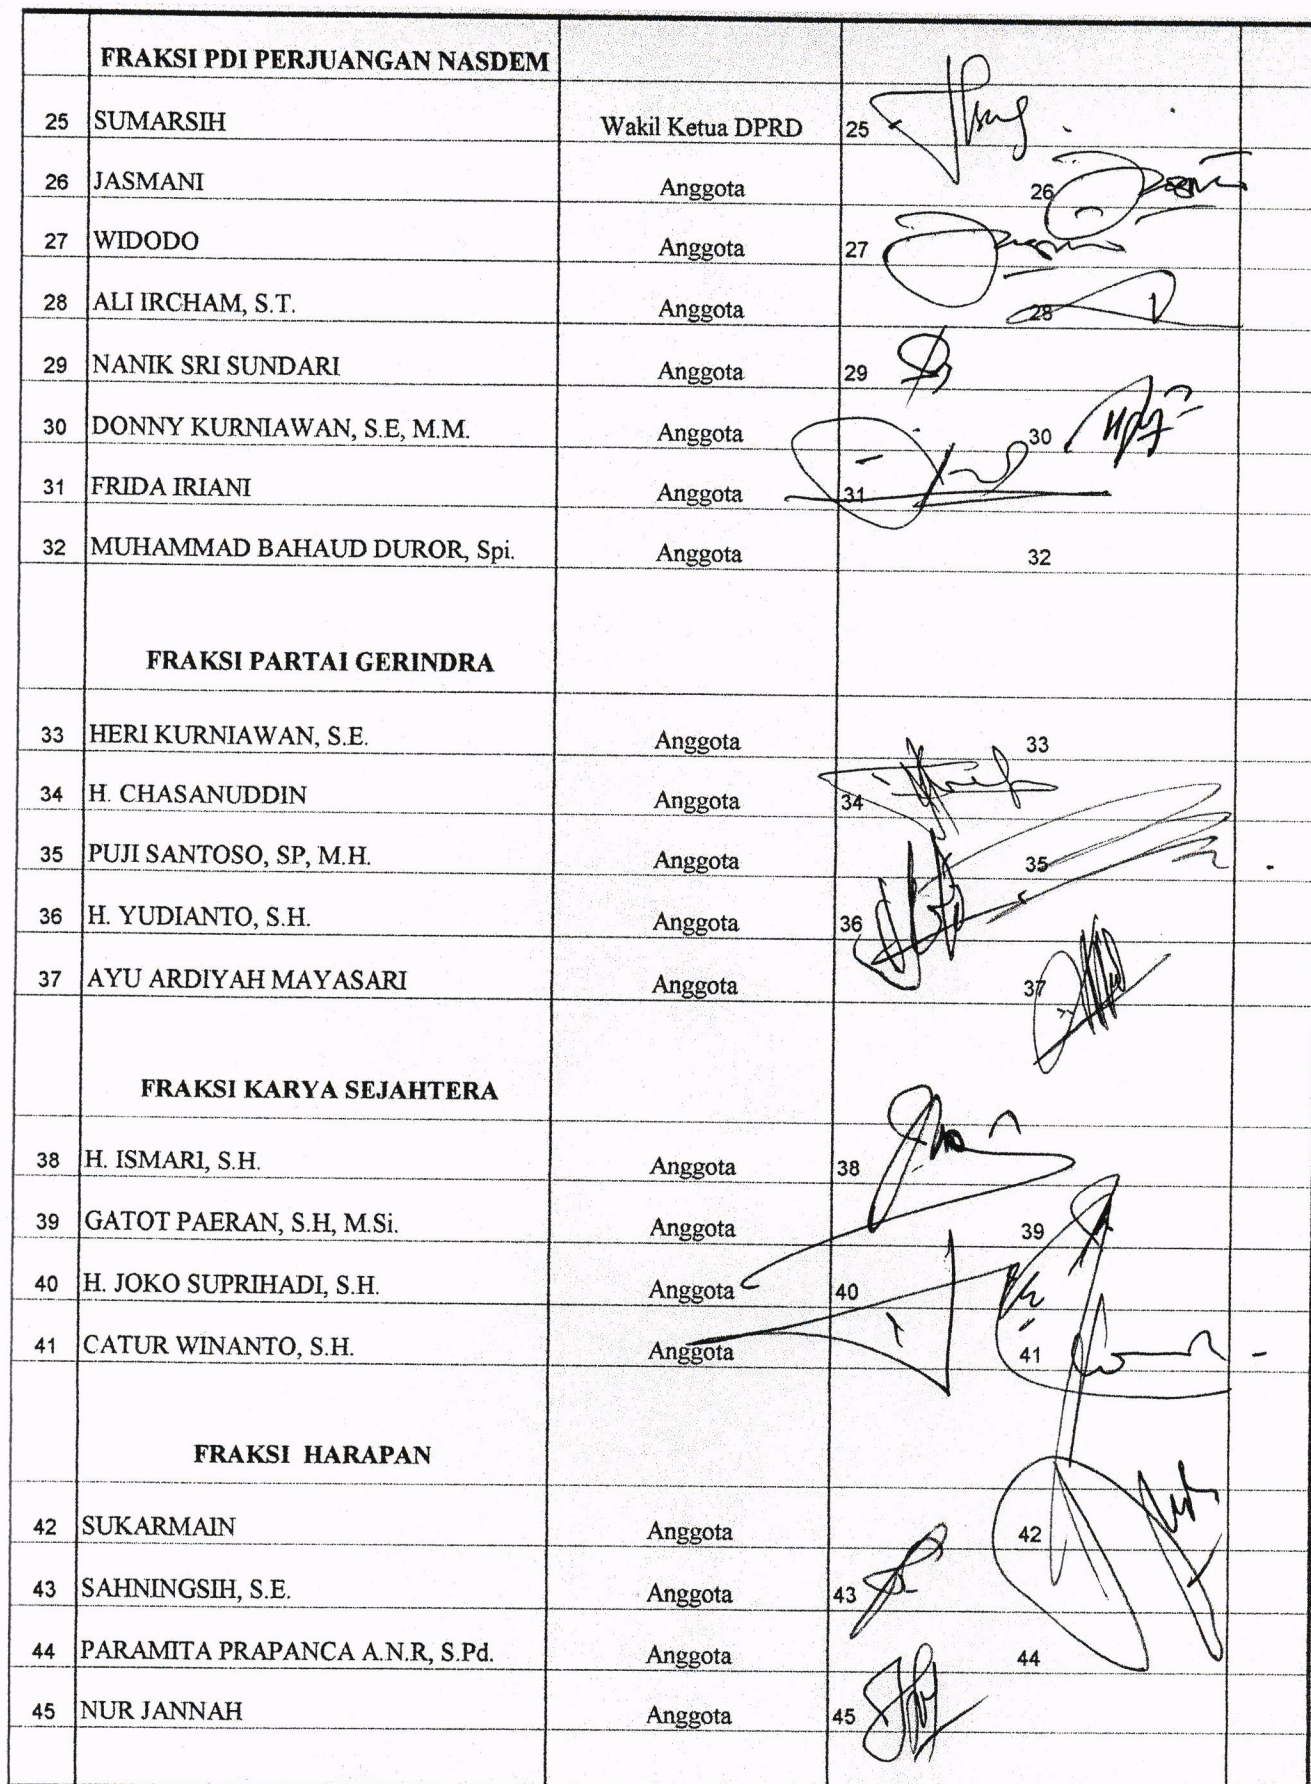 FRAKSI PDI PERJUANGAN NASDEM
25 SUMARSIH Wakil Ketua DPRD 25
26 JASMANI Anggota 26
27 WIDODO Anggota 27
28 ALI IRCHAM, S.T. Anggota 28
29 NANIK SRI SUNDARI Anggota 29
30 DONNY KURNIAWAN, S.E, M.M. Anggota 30
31 FRIDA IRIANI Anggota 31
32 MUHAMMAD BAHAUD DUROR, Spi. Anggota 32
FRAKSI PARTAI GERINDRA
33 HERI KURNIAWAN, S.E. Anggota 33
34 H. CHASANUDDIN Anggota 34
35 PUJI SANTOSO, SP, M.H. Anggota 35
36 H. YUDIANTO, S.H. Anggota 36
37 AYU ARDIYAH MAYASARI Anggota 37
FRAKSI KARYA SEJAHTERA
38 H. ISMARI, S.H. Anggota 38
39 GATOT PAERAN, S.H, M.Si. Anggota 39
40 H. JOKO SUPRIHADI, S.H. Anggota 40
41 CATUR WINANTO, S.H. Anggota 41
FRAKSI HARAPAN
42 SUKARMAIN Anggota 42
43 SAHNINGSIH, S.E. Anggota 43
44 PARAMITA PRAPANCA A.N.R, S.Pd. Anggota 44
45 NUR JANNAH Anggota 45